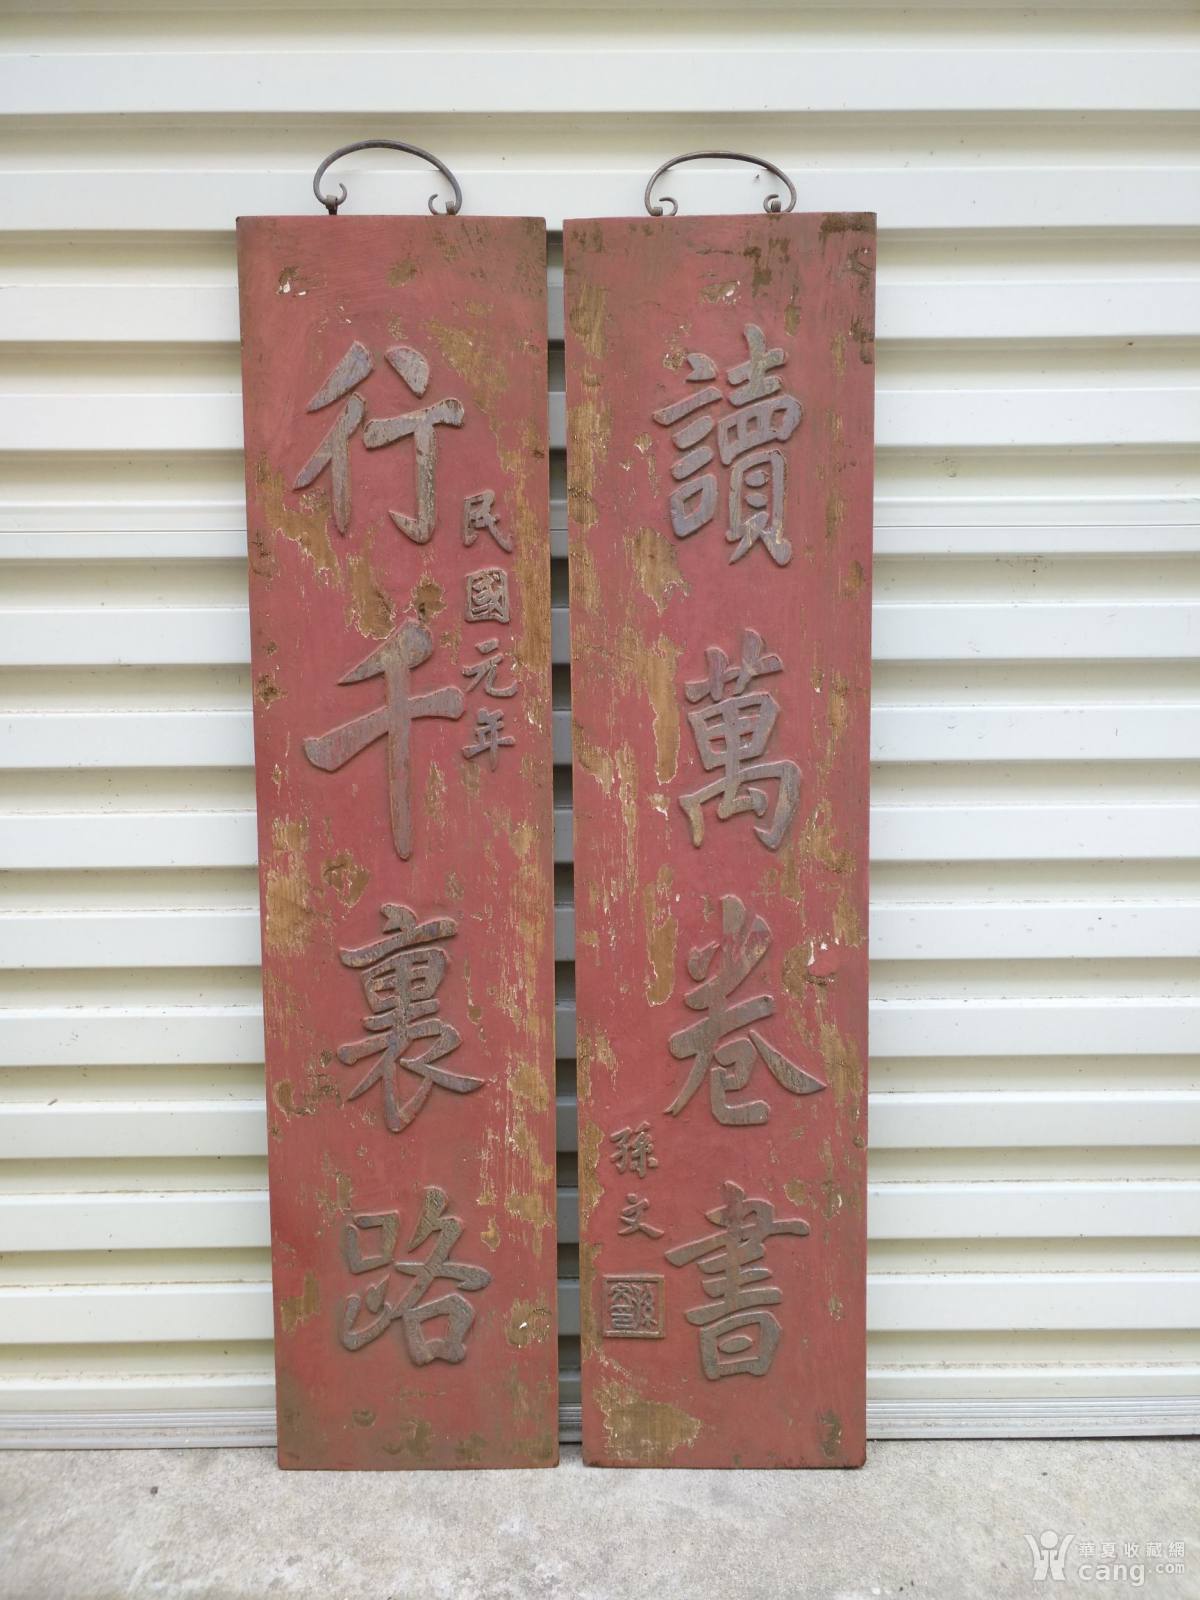 讀萬卷書
孫文
行千裏路
民國元年
華夏收藏網
cang.com